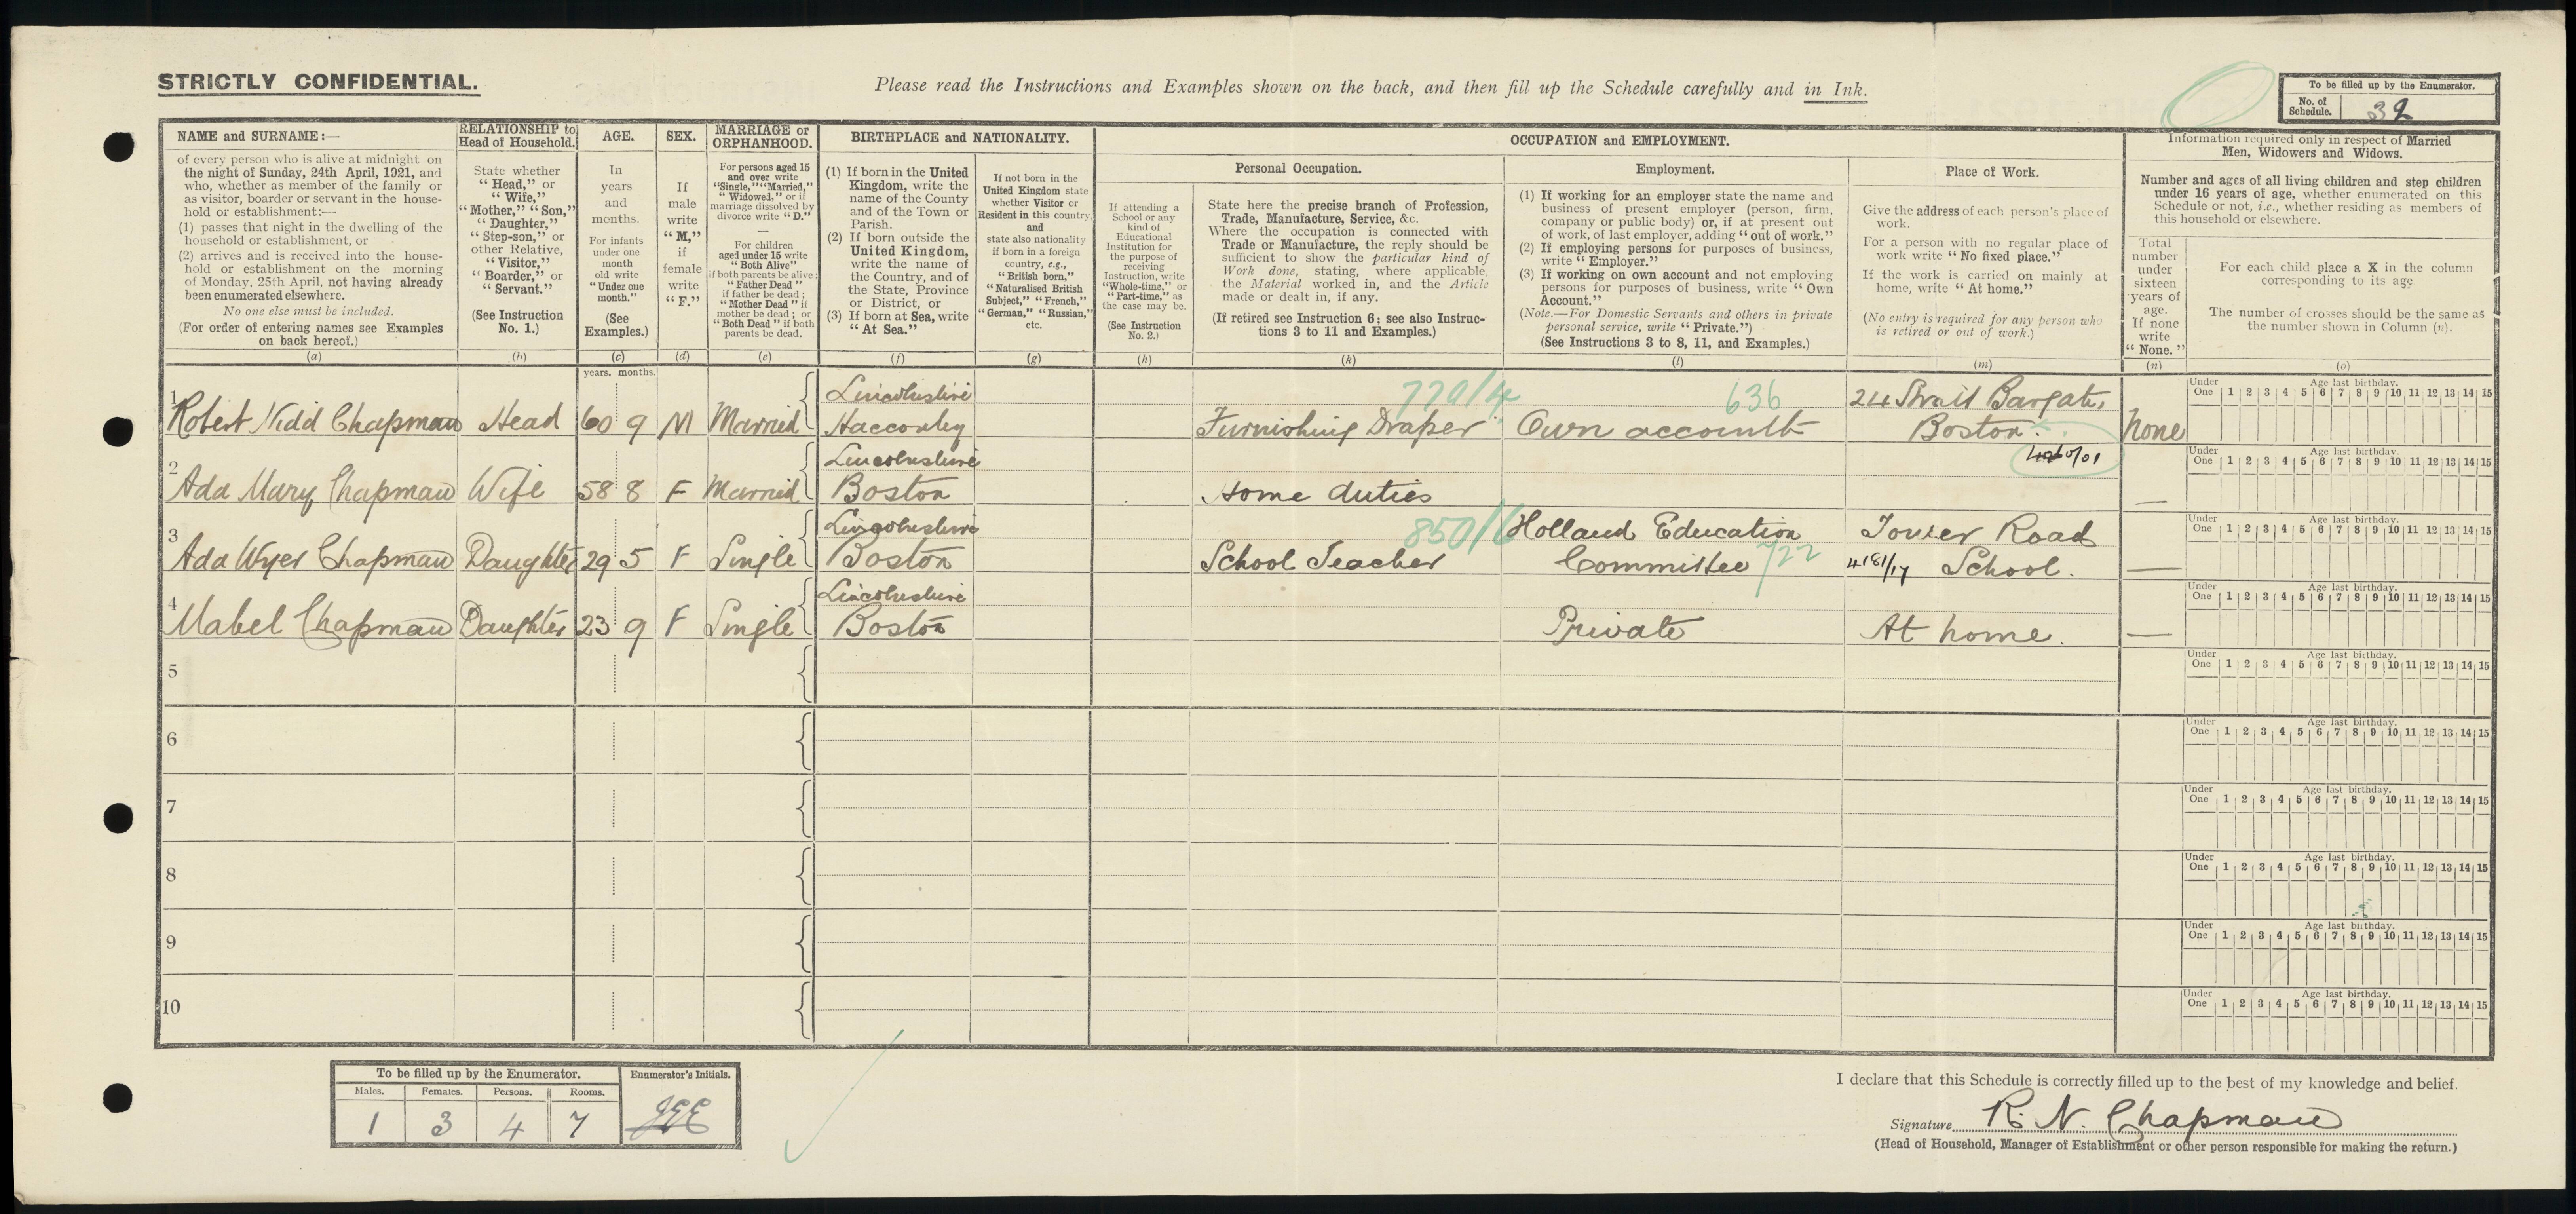 STRICTLY CONFIDENTIAL.
Please read the Instructions and Examples shown on the back, and then fill up the Schedule carefully and in Ink.
To be filled up by the Enumerator.
No. of Schedule. 32
NAME and SURNAME:—
of every person who is alive at midnight on
the night of Sunday, 24th April, 1921, and
who, whether as member of the family or
as visitor, boarder or servant in the house-
hold or establishment:—
(1) passes that night in the dwelling of the
household or establishment, or
(2) arrives and is received into the house-
hold or establishment on the morning
of Monday, 25th April, not having already
been enumerated elsewhere.
No one else must be included.
(For order of entering names see Examples
on back hereof.)
(a)
RELATIONSHIP to
Head of Household.
State whether
"Head," or
"Wife,"
"Mother," "Son,"
"Daughter,"
"Step-son," or
other Relative,
"Visitor,"
"Boarder," or
"Servant."
(See Instruction
No. 1.)
(b)
AGE.
In
years
and
months.
For infants
under one
month
old write
"Under one
month."
(See
Examples.)
(c)
SEX.
If
male
write
"M,"
if
female
write
"F."
(d)
MARRIAGE or
ORPHANHOOD.
For persons aged 15
and over write
"Single," "Married,"
"Widowed," or if
marriage dissolved by
divorce write "D."
—
For children
aged under 15 write
"Both Alive"
if both parents be alive;
"Father Dead"
if father be dead;
"Mother Dead" if
mother be dead; or
"Both Dead" if both
parents be dead.
(e)
BIRTHPLACE and NATIONALITY.
(1) If born in the United
Kingdom, write the
name of the County
and of the Town or
Parish.
(2) If born outside the
United Kingdom,
write the name of
the Country, and of
the State, Province
or District, or
(3) If born at Sea, write
"At Sea."
(f)
If not born in the
United Kingdom state
whether Visitor or
Resident in this country,
and
state also nationality
if born in a foreign
country, e.g.,
"British born,"
"Naturalised British
Subject," "French,"
"German," "Russian,"
etc.
(g)
OCCUPATION and EMPLOYMENT.
If attending a
School or any
kind of
Educational
Institution for
the purpose of
receiving
Instruction, write
"Whole-time," or
"Part-time," as
the case may be.
(See Instruction
No. 2.)
(h)
Personal Occupation.
State here the precise branch of Profession,
Trade, Manufacture, Service, &c.
Where the occupation is connected with
Trade or Manufacture, the reply should be
sufficient to show the particular kind of
Work done, stating, where applicable,
the Material worked in, and the Article
made or dealt in, if any.
(If retired see Instruction 6; see also Instruc-
tions 3 to 11 and Examples.)
(k)
Employment.
(1) If working for an employer state the name and
business of present employer (person, firm,
company or public body) or, if at present out
of work, of last employer, adding "out of work."
(2) If employing persons for purposes of business,
write "Employer."
(3) If working on own account and not employing
persons for purposes of business, write "Own
Account."
(Note.—For Domestic Servants and others in private
personal service, write "Private.")
(See Instructions 3 to 8, 11, and Examples.)
(l)
Place of Work.
Give the address of each person's place of
work.
For a person with no regular place of
work write "No fixed place."
If the work is carried on mainly at
home, write "At home."
(No entry is required for any person who
is retired or out of work.)
(m)
Information required only in respect of Married
Men, Widowers and Widows.
Number and ages of all living children and step children
under 16 years of age, whether enumerated on this
Schedule or not, i.e., whether residing as members of
this household or elsewhere.
Total
number
under
sixteen
years of
age.
If none
write
"None."
(n)
For each child place a X in the column
corresponding to its age
The number of crosses should be the same as
the number shown in Column (n).
(o)
years. months.
1 Robert Nidd Chapman Head 60 9 M Married Lincolnshire Hacconby Furnishing Draper 770/4 Own account 636 24 Strait Bargate, Boston. None
Under One 1 2 3 4 5 6 7 8 9 10 11 12 13 14 15 Age last birthday.
2 Ada Mary Chapman Wife 58 8 F Married Lincolnshire Boston Home duties —
Under One 1 2 3 4 5 6 7 8 9 10 11 12 13 14 15 Age last birthday.
3 Ada Wyer Chapman Daughter 29 5 F Single Lincolnshire Boston School Teacher 850/6 Holland Education Committee 722 Tower Road School. 4181/17 —
Under One 1 2 3 4 5 6 7 8 9 10 11 12 13 14 15 Age last birthday.
4 Mabel Chapman Daughter 23 9 F Single Lincolnshire Boston Private At home. —
Under One 1 2 3 4 5 6 7 8 9 10 11 12 13 14 15 Age last birthday.
5
Under One 1 2 3 4 5 6 7 8 9 10 11 12 13 14 15 Age last birthday.
6
Under One 1 2 3 4 5 6 7 8 9 10 11 12 13 14 15 Age last birthday.
7
Under One 1 2 3 4 5 6 7 8 9 10 11 12 13 14 15 Age last birthday.
8
Under One 1 2 3 4 5 6 7 8 9 10 11 12 13 14 15 Age last birthday.
9
Under One 1 2 3 4 5 6 7 8 9 10 11 12 13 14 15 Age last birthday.
10
Under One 1 2 3 4 5 6 7 8 9 10 11 12 13 14 15 Age last birthday.
To be filled up by the Enumerator.
Males. Females. Persons. Rooms.
1 3 4 7
Enumerator's Initials.
JEE
I declare that this Schedule is correctly filled up to the best of my knowledge and belief.
Signature R. N. Chapman
(Head of Household, Manager of Establishment or other person responsible for making the return.)